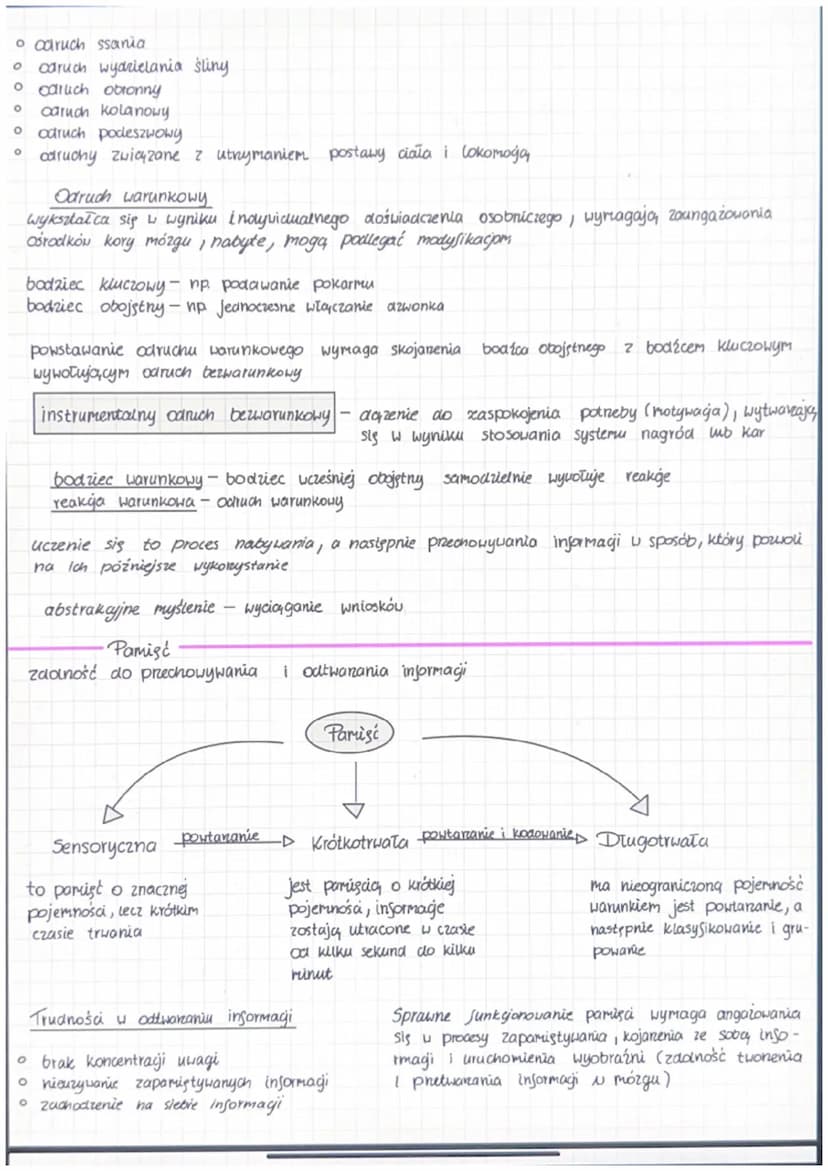 odruch ssania
odruch wydzielania śliny
odruch obronny
odruch kolanowy
odruch podeszwowy
odruchy związane z utrzymaniem postawy ciała i lokomocją
Odruch warunkowy
wykształca się w wyniku indywidualnego doświadczenia osobniczego, wymagają zaangażowania
ośrodków kory mózgu, nabyte, mogą podlegać modyfikacjom
bodziec kluczowy – np. podawanie pokarmu
bodziec obojętny – np. jednoczesne włączanie dzwonka
powstawanie odruchu warunkowego wymaga skojarzenia bodźca obojętnego z bodźcem kluczowym
wywołującym odruch bezwarunkowy
instrumentalny odruch bezwarunkowy – dążenie do zaspokojenia potrzeby (motywacja), wytwarzają
się w wyniku stosowania systemu nagród lub kar
bodziec warunkowy – bodziec wcześniej obojętny samodzielnie wywołuje reakcje
reakcja warunkowa – odruch warunkowy
uczenie się to proces nabywania, a następnie przechowywania informacji w sposób, który pozwoli
na ich późniejsze wykorzystanie
abstrakcyjne myślenie – wyciąganie wniosków
Pamięć
zdolność do przechowywania i odtwarzania informacji
Pamięć
Sensoryczna powtarzanie Krótkotrwała powtarzanie i kodowanie Długotrwała
to pamięć o znacznej
pojemności, lecz krótkim
czasie trwania
jest pamięcią o krótkiej
pojemności, informacje
zostają utracone w czasie
od kilku sekund do kilku
minut
ma nieograniczoną pojemność
warunkiem jest powtarzanie, a
następnie klasyfikowanie i gru-
powanie
Trudności w odtwarzaniu informacji
brak koncentracji uwagi
nieużywanie zapamiętywanych informacji
zachodzenie na siebie informacji
Sprawne funkcjonowanie pamięci wymaga angażowania
się w procesy zapamiętywania, kojarzenia ze sobą info-
rmacji i uruchomienia wyobraźni (zdolność tworzenia
i przetwarzania informacji w mózgu)